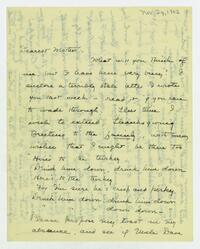 Nov. 24, 1902
Dearest Mother,
What will you think of
me, but I have been very busy. I
enclose a terribly stale letter I wrote
you last week — read it if you care
to wade through. This time I
wish to extend Thanksgiving
Greetings to the family, with many
wishes that I might be there too
Here's to the turkey
Drink him down, drink him down
Here's to the turkey
For I'm sure he's crisp and perky
Drink him down, drink him down
down down —
Please propose my toast in my
absence, and see if Uncle Dave